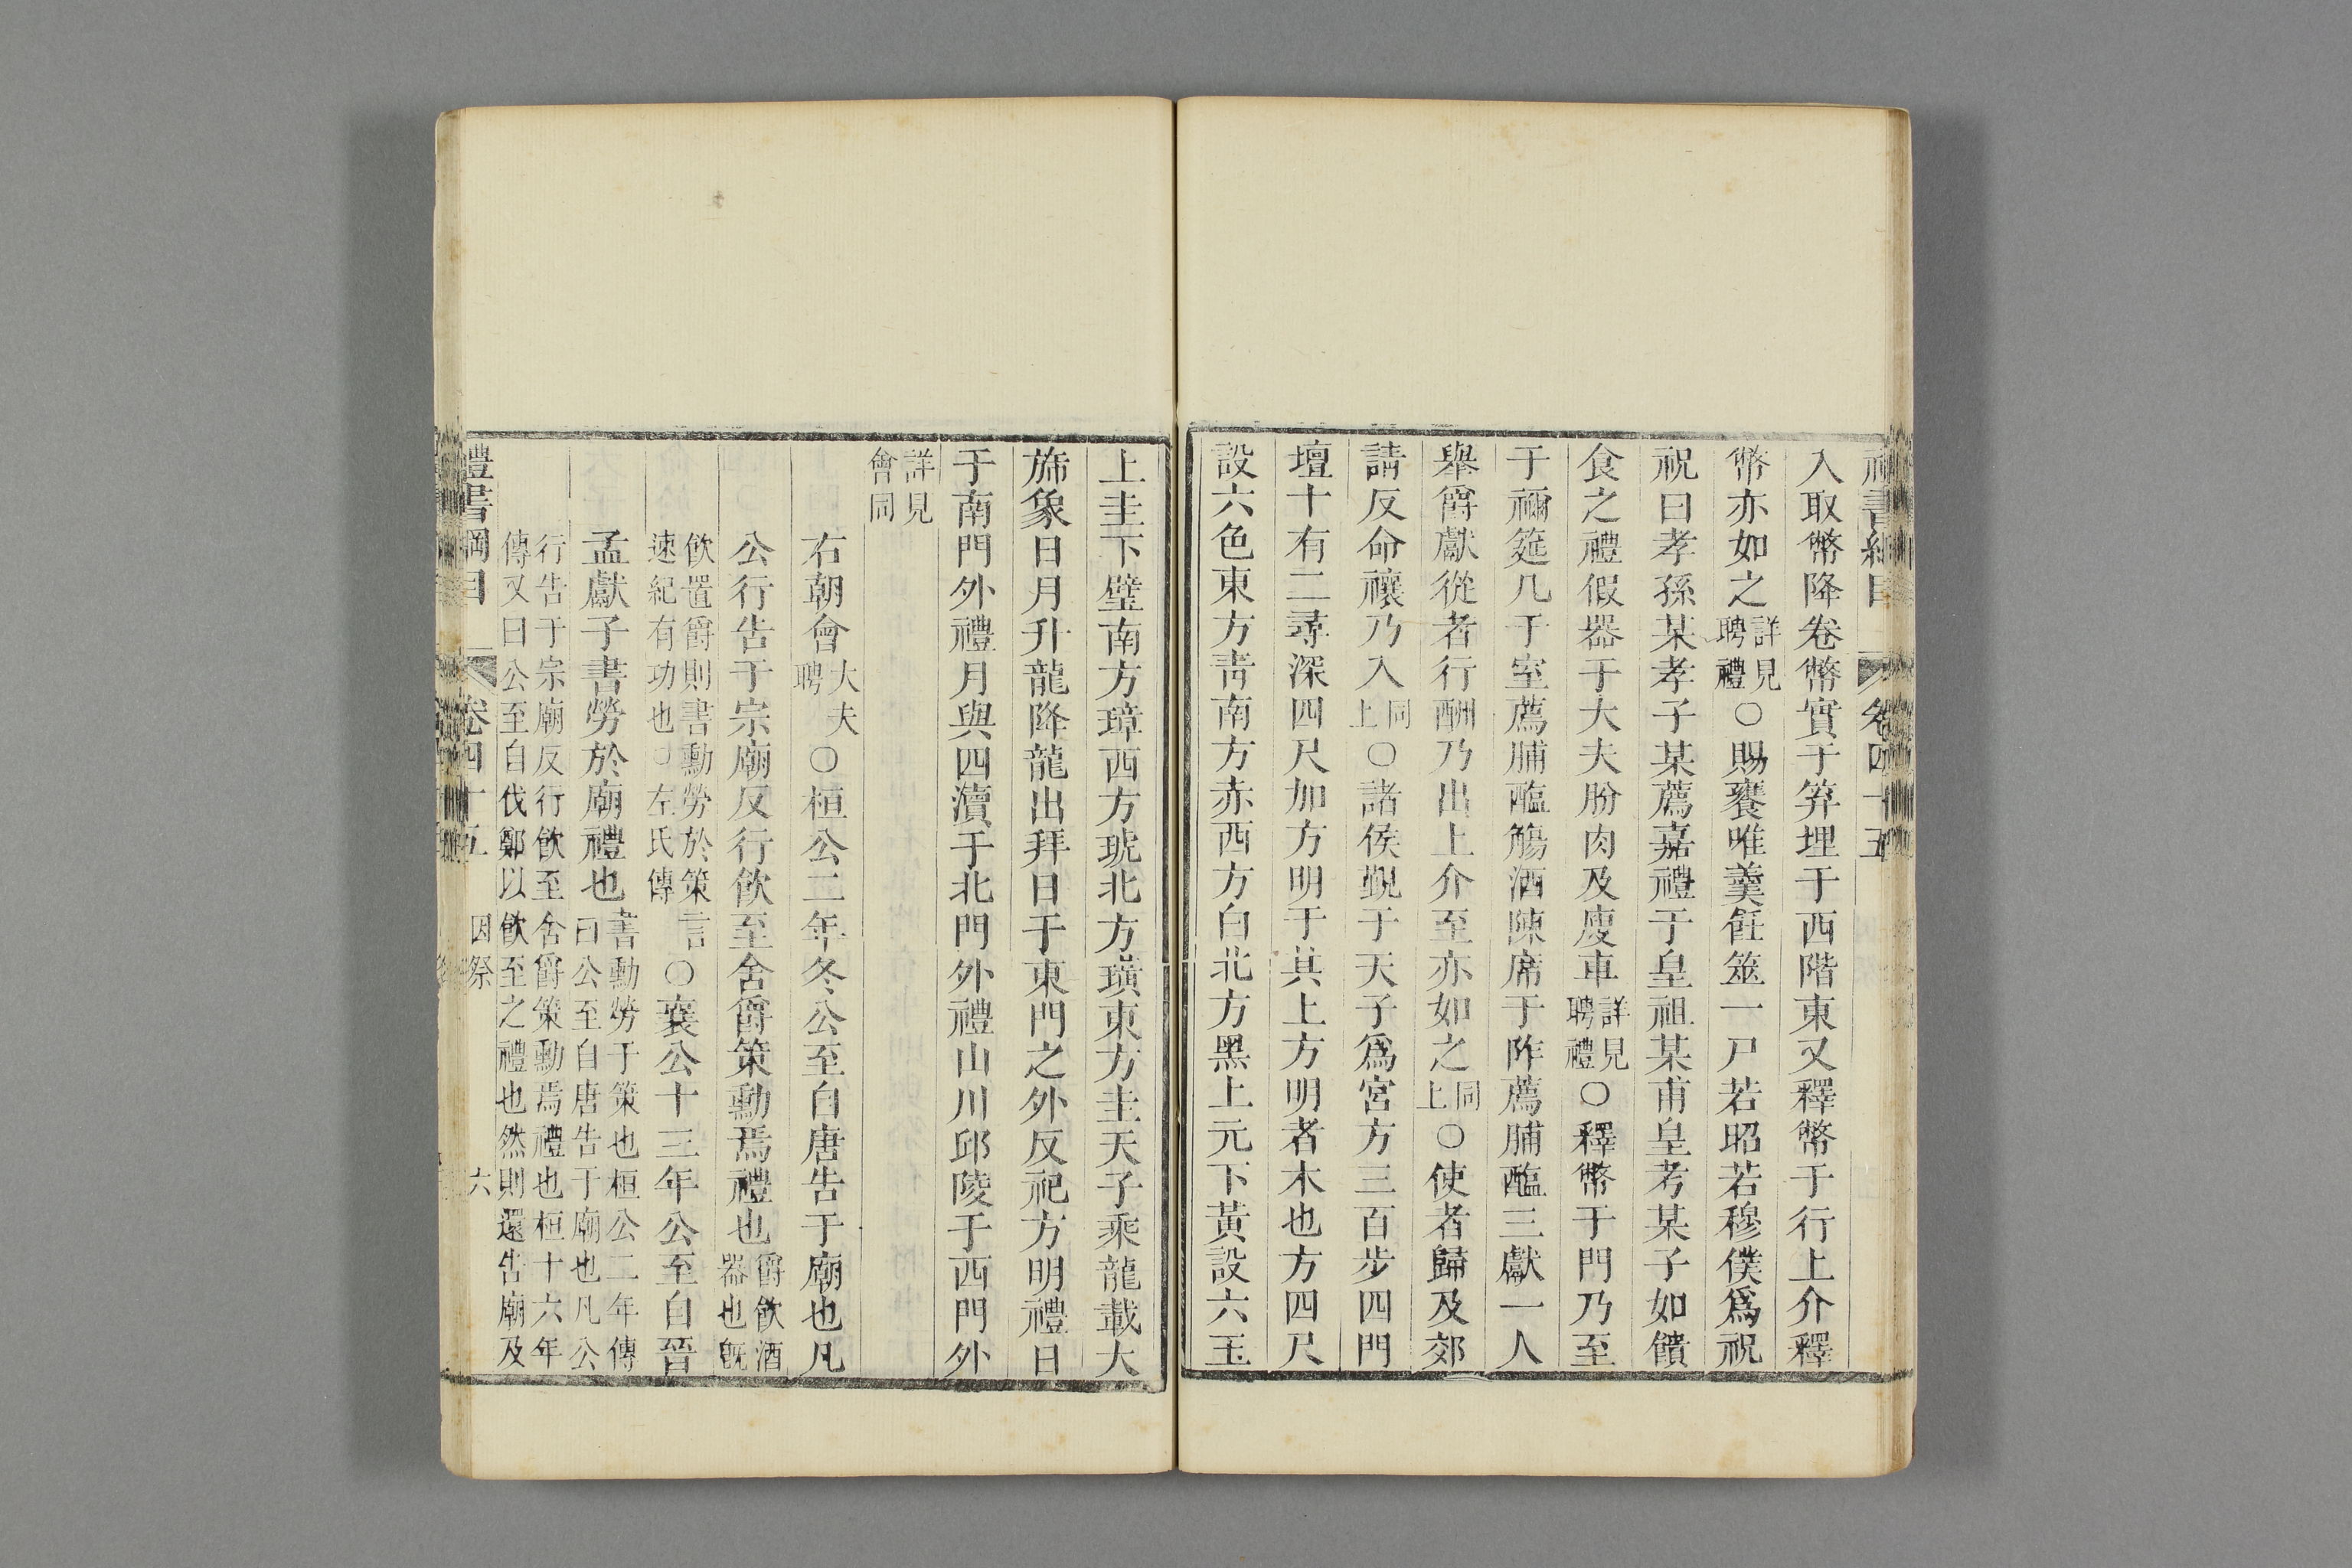 禮書綱目 卷四十五
入取幣降卷幣實于笲埋于西階東又釋幣于行上介釋
幣亦如之詳見聘禮○賜饔唯羹飪筮一尸若昭若穆僕爲祝
祝曰孝孫某孝子某薦嘉禮于皇祖某甫皇考某子如饋
食之禮假器于大夫肦肉及廋車詳見聘禮○釋幣于門乃至
于禰筵几于室薦脯醢觴酒陳席于阼薦脯醢三獻一人
舉爵獻從者行酬乃出上介至亦如之同上○使者歸及郊
請反命禳乃入同上○諸侯覲于天子爲宮方三百步四門
壇十有二尋深四尺加方明于其上方明者木也方四尺
設六色東方靑南方赤西方白北方黑上元下黃設六玉
上圭下璧南方璋西方琥北方璜東方圭天子乘龍載大
旆象日月升龍降龍出拜日于東門之外反祀方明禮日
于南門外禮月與四瀆于北門外禮山川邱陵于西門外
詳見會同
右朝會大夫聘○桓公二年冬公至自唐告于廟也凡
公行告于宗廟反行飮至舍爵策勳焉禮也爵飮酒器也旣
飮置爵則書勳勞於策言速紀有功也○左氏傳○襄公十三年公至自晉
孟獻子書勞於廟禮也書勳勞于策也桓公二年傳曰公至自唐告于廟也凡公
行告于宗廟反行飮至舍爵策勳焉禮也桓十六年傳又曰公至自伐鄭以飮至之禮也然則還告廟及
禮書綱目 卷四十五 因祭 六